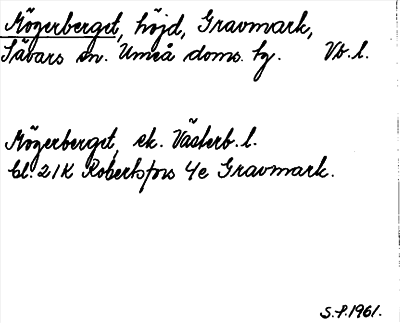 Mögerberget, höjd, Gravmark,
Sävars sn. Umeå doms. hg. Vb. l.
Mögerberget, ek. Västerb. l.
bl. 21K Robertsfors 4e Gravmark.
S.P. 1961.